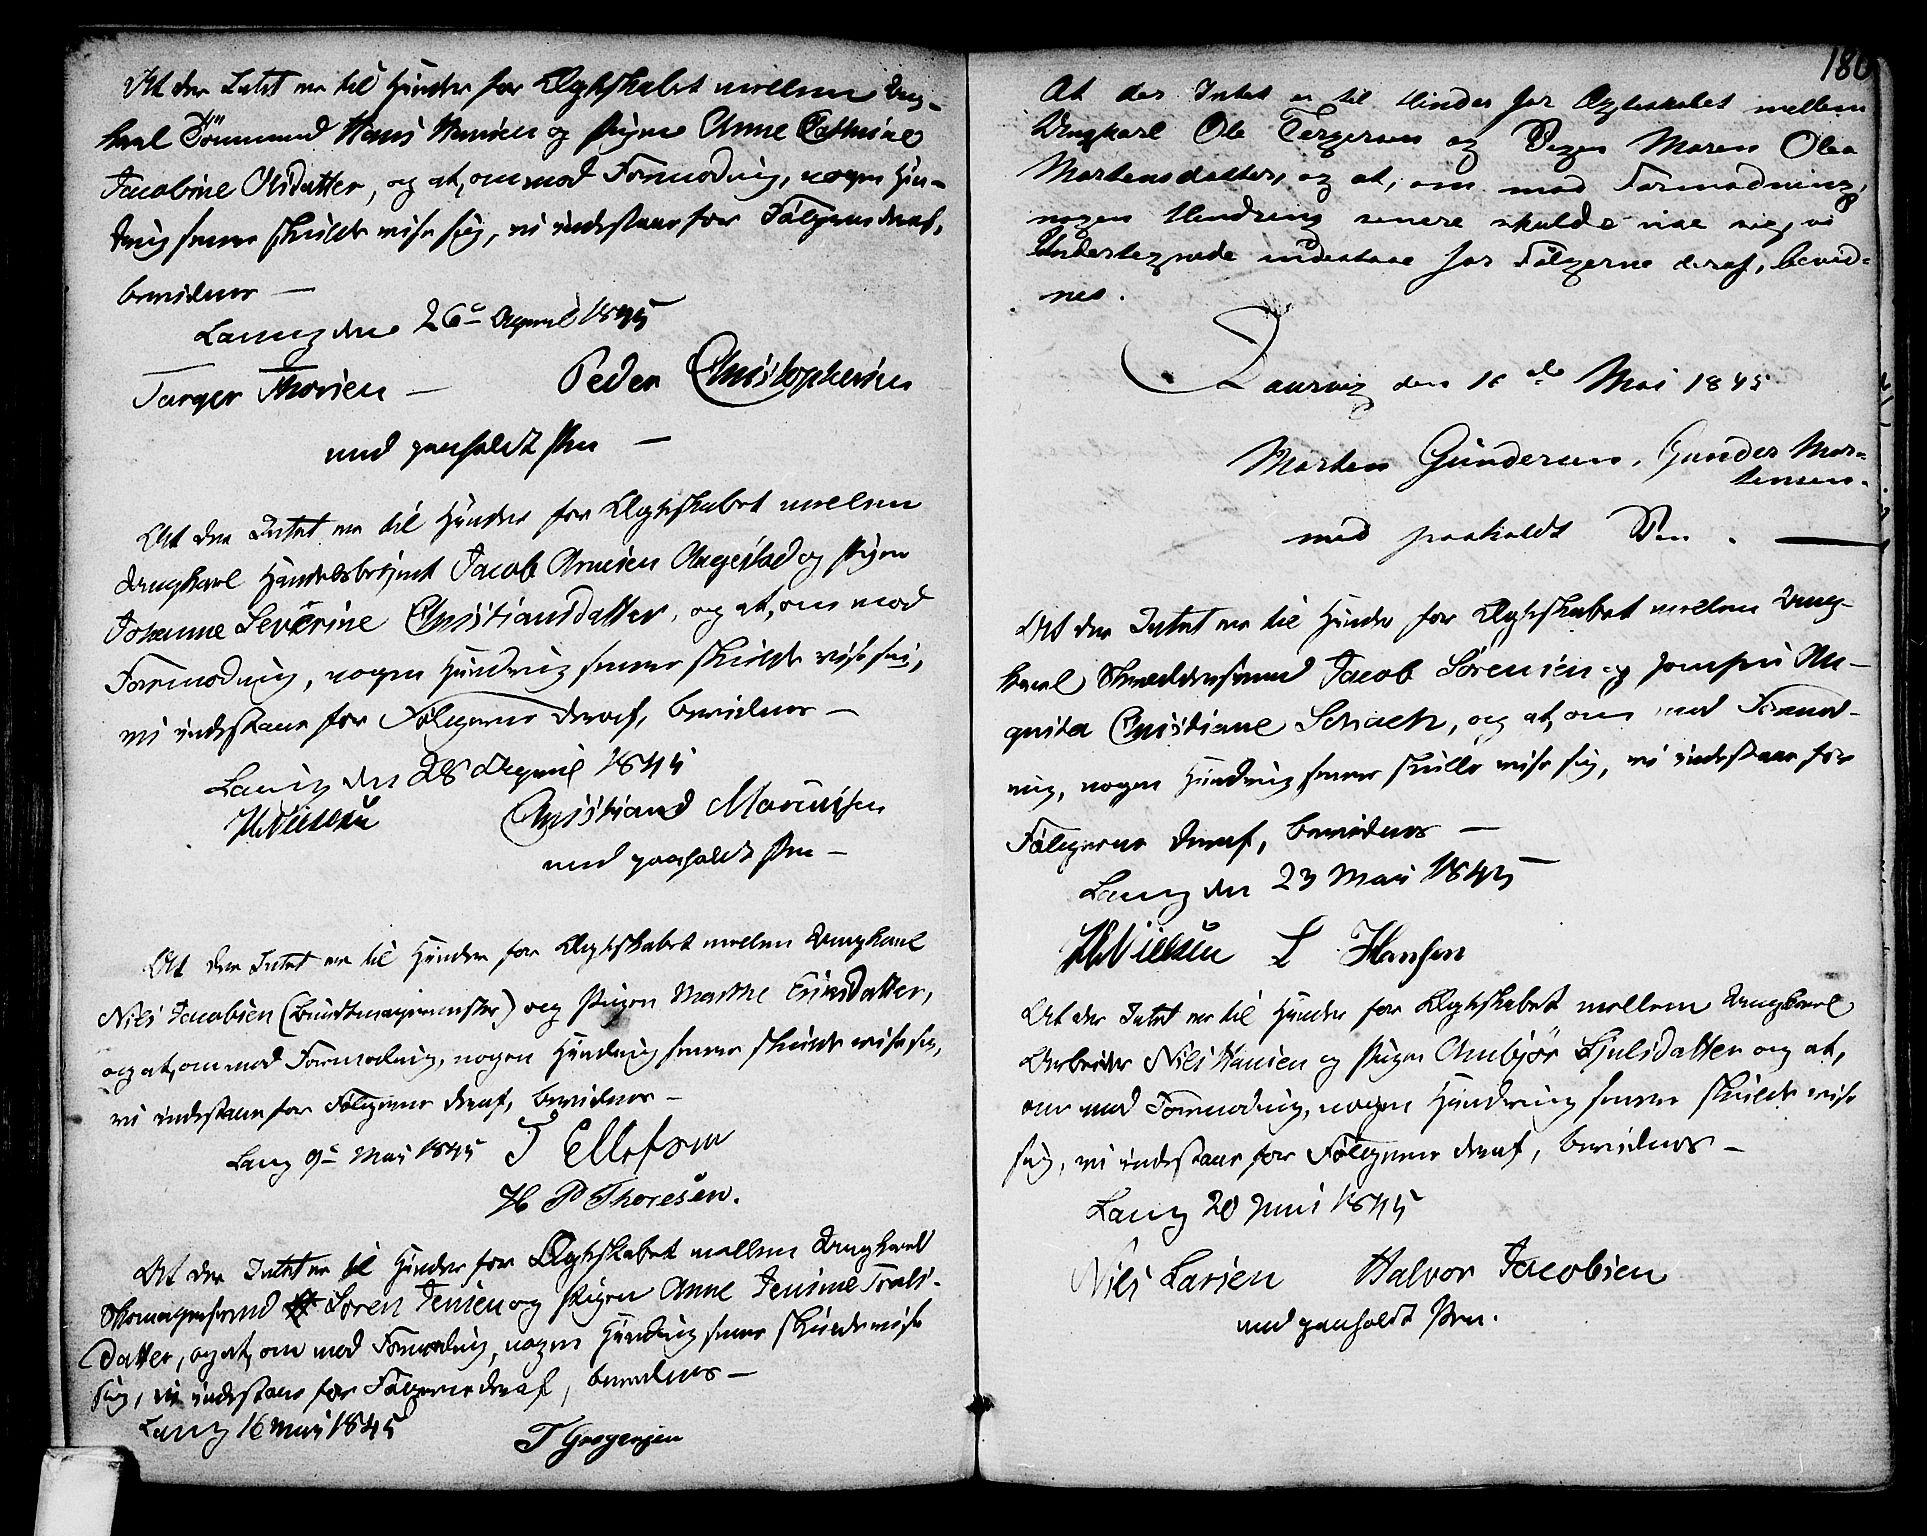 At der Intet er til Hinder for Ægteskabet mellem Ung-
karl Tömmermd Hans Hansen og Pigen Anne Cathrine
Jacobine Olsdatter, og at, om mod Formodning, nogen Hin-
dring senere skulde vise sig, vi indestaae for Fölgerne deraf,
bevidnes —
Laurvig den 26de April 1845
Torger Thorsen — Peder Christophersen
med paaholdt Pen —
At der Intet er til Hinder for Ægteskabet mellem
Ungkarl Handelsbetjent Jacob Arnesen Aagestad og Pigen
Johanne Severine Christiansdatter, og at, om mod
Formodning, nogen Hindring senere skulde vise sig,
vi indestaae for Fölgerne deraf, bevidnes —
Laurvig den 28 April 1845
H Nielsen Christiand
med paaholdt Pen —
At der Intet er til Hinder for Ægteskabet mellem Ungkarl
Niels Jacobsen (Bundtmagermester) og Pigen Marthe Eriksdatter,
og at, om mod Formodning, nogen Hindring senere skulde vise sig,
vi indestaae for Fölgerne deraf, bevidnes —
Laurvig 9de Mai 1845 T Ellefsen
H P Thoresen.
At der Intet er til Hinder for Ægteskabet mellem Ungkarl
Skomagersvend Sören Jensen og Pigen Anne Jensine Troels-
datter, og at, om mod Formodning, nogen Hindring senere skulde vise
sig, vi indestaae for Fölgerne deraf, bevidnes —
Laurvig 16 Mai 1845
T
180
At der Intet er til Hinder for Ægteskabet mellem
Ungkarl Ole Tergersen og Pigen Maren Olea
Mortensdatter, og at, om mod Formodning,
nogen Hindring senere skulde vise sig, vi
Undertegnede indestaae for Fölgerne deraf, bevid-
nes.
Laurvig den 16de Mai 1845
Morten Gundersen, Gunder Mor-
tensen.
med paaholdt Pen. —
At der Intet er til Hinder for Ægteskabet mellem Ung-
karl Smeddesvend Jacob Sörensen og Jomfru Au-
gusta Christiane Schach, og at, om mod Formod-
ning, nogen Hindring senere skulde vise sig, vi indestaae for
Fölgerne deraf, bevidnes —
Laurvig den 23 Mai 1845 —
H Nielsen L Hansen
At der Intet er til Hinder for Ægteskabet mellem Ungkarl
Arbeider Niels Hansen og Pigen Anbjör Kjelsdatter og at,
om mod Formodning, nogen Hindring senere skulde vise
sig, vi indestaae for Fölgerne deraf, bevidnes —
Laurvig 20 Juni 1845
Niels Larsen Halvor Jacobsen
med paaholdt Pen.